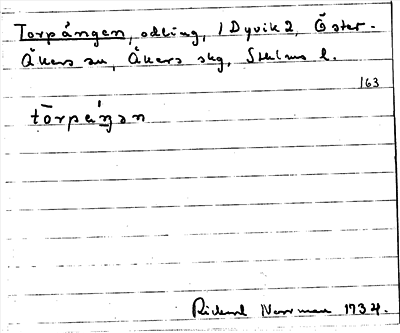 Torpängen, odling, i Dyvik 2, Öster-
Åkers sn, Åkers skg, Sthlms l.
163
tōrpæ̀ŋən
Rickard Norrman 1934.